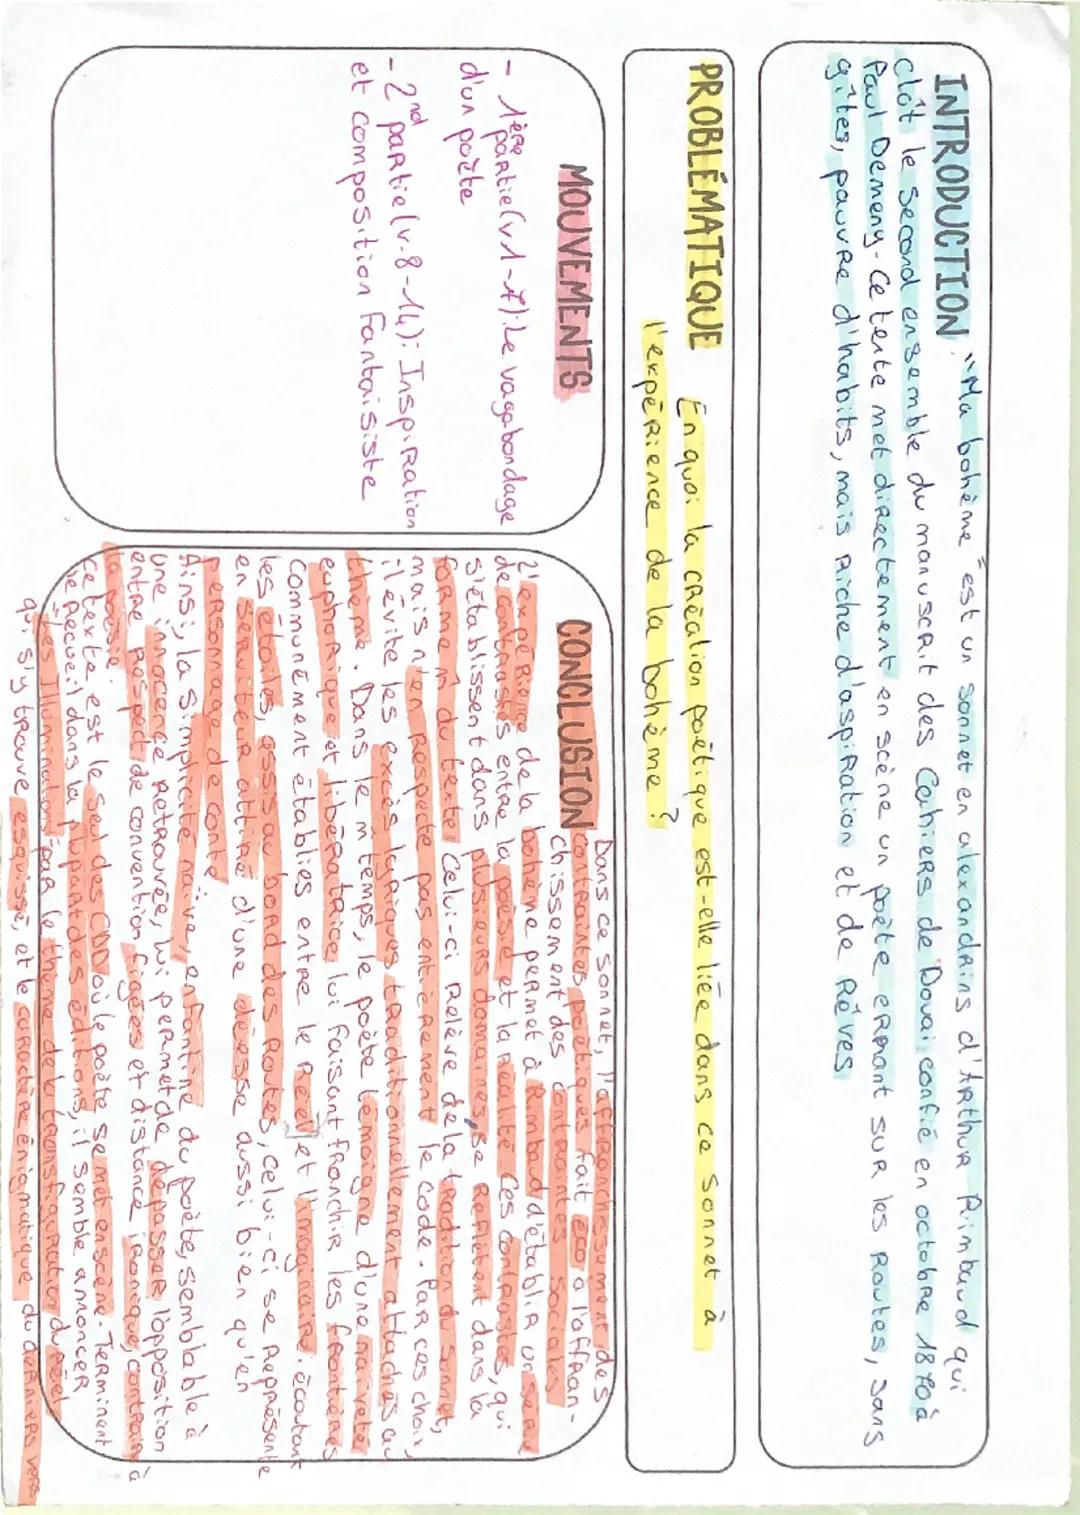 INTRODUCTION "Ma bohème" est un sonnet en alexandrins d'Arthur Rimbaud qui
clôt le second ensemble du manuscrit des Cahiers de Douai, confié en octobre 1870 à
Paul Demeny. Ce texte met directement en scène un poète errant sur les routes, sans
gîtes, pauvre d'habits, mais riche d'aspiration et de rêves
PROBLÉMATIQUE En quoi la création poétique est-elle liée dans ce sonnet à
l'expérience de la bohème ?
MOUVEMENTS
- 1ère partie (v1-7): Le vagabondage
d'un poète
- 2nd partie (v.8-14): Inspiration
et composition fantaisiste
CONCLUSION Dans ce sonnet, l'affranchissement des
contraintes poétiques fait éco à l'affran-
chissement des contraintes sociales
L'expérience de la bohème permet à Rimbaud d'établir un série
de contrastes entre la poésie et la réalité. Ces contrastes, qui
s'établissent dans plusieurs domaines, se reflètent dans la
forme m du texte. Celui-ci relève de la tradition du sonnet,
mais n'en respecte pas entièrement le code. Par ces choix,
il évite les excès lyriques traditionnellement attachés au
thème. Dans le m temps, le poète témoigne d'une naïveté
euphorique et libératrice lui faisant franchir les frontières
communément établies entre le réel et l'imaginaire: écoutant
les étoiles, assis au bord des routes, celui-ci se représente
en serviteur attitré d'une déesse aussi bien qu'en
personnage de conte.
Ainsi, la simplicité naïve, enfantine du poète, semblable à
une innocence retrouvée, lui permet de dépasser l'opposition
entre respect de convention figées et distance ironique, contraire à
la poésie.
Ce texte est le seul des CDD où le poète se met en scène. Terminant
le recueil dans la plupart des éditions, il semble annoncer
"les Illuminations" par le thème de la transfiguration du réel
qui s'y trouve esquissé, et le caractère énigmatique du derniers vers